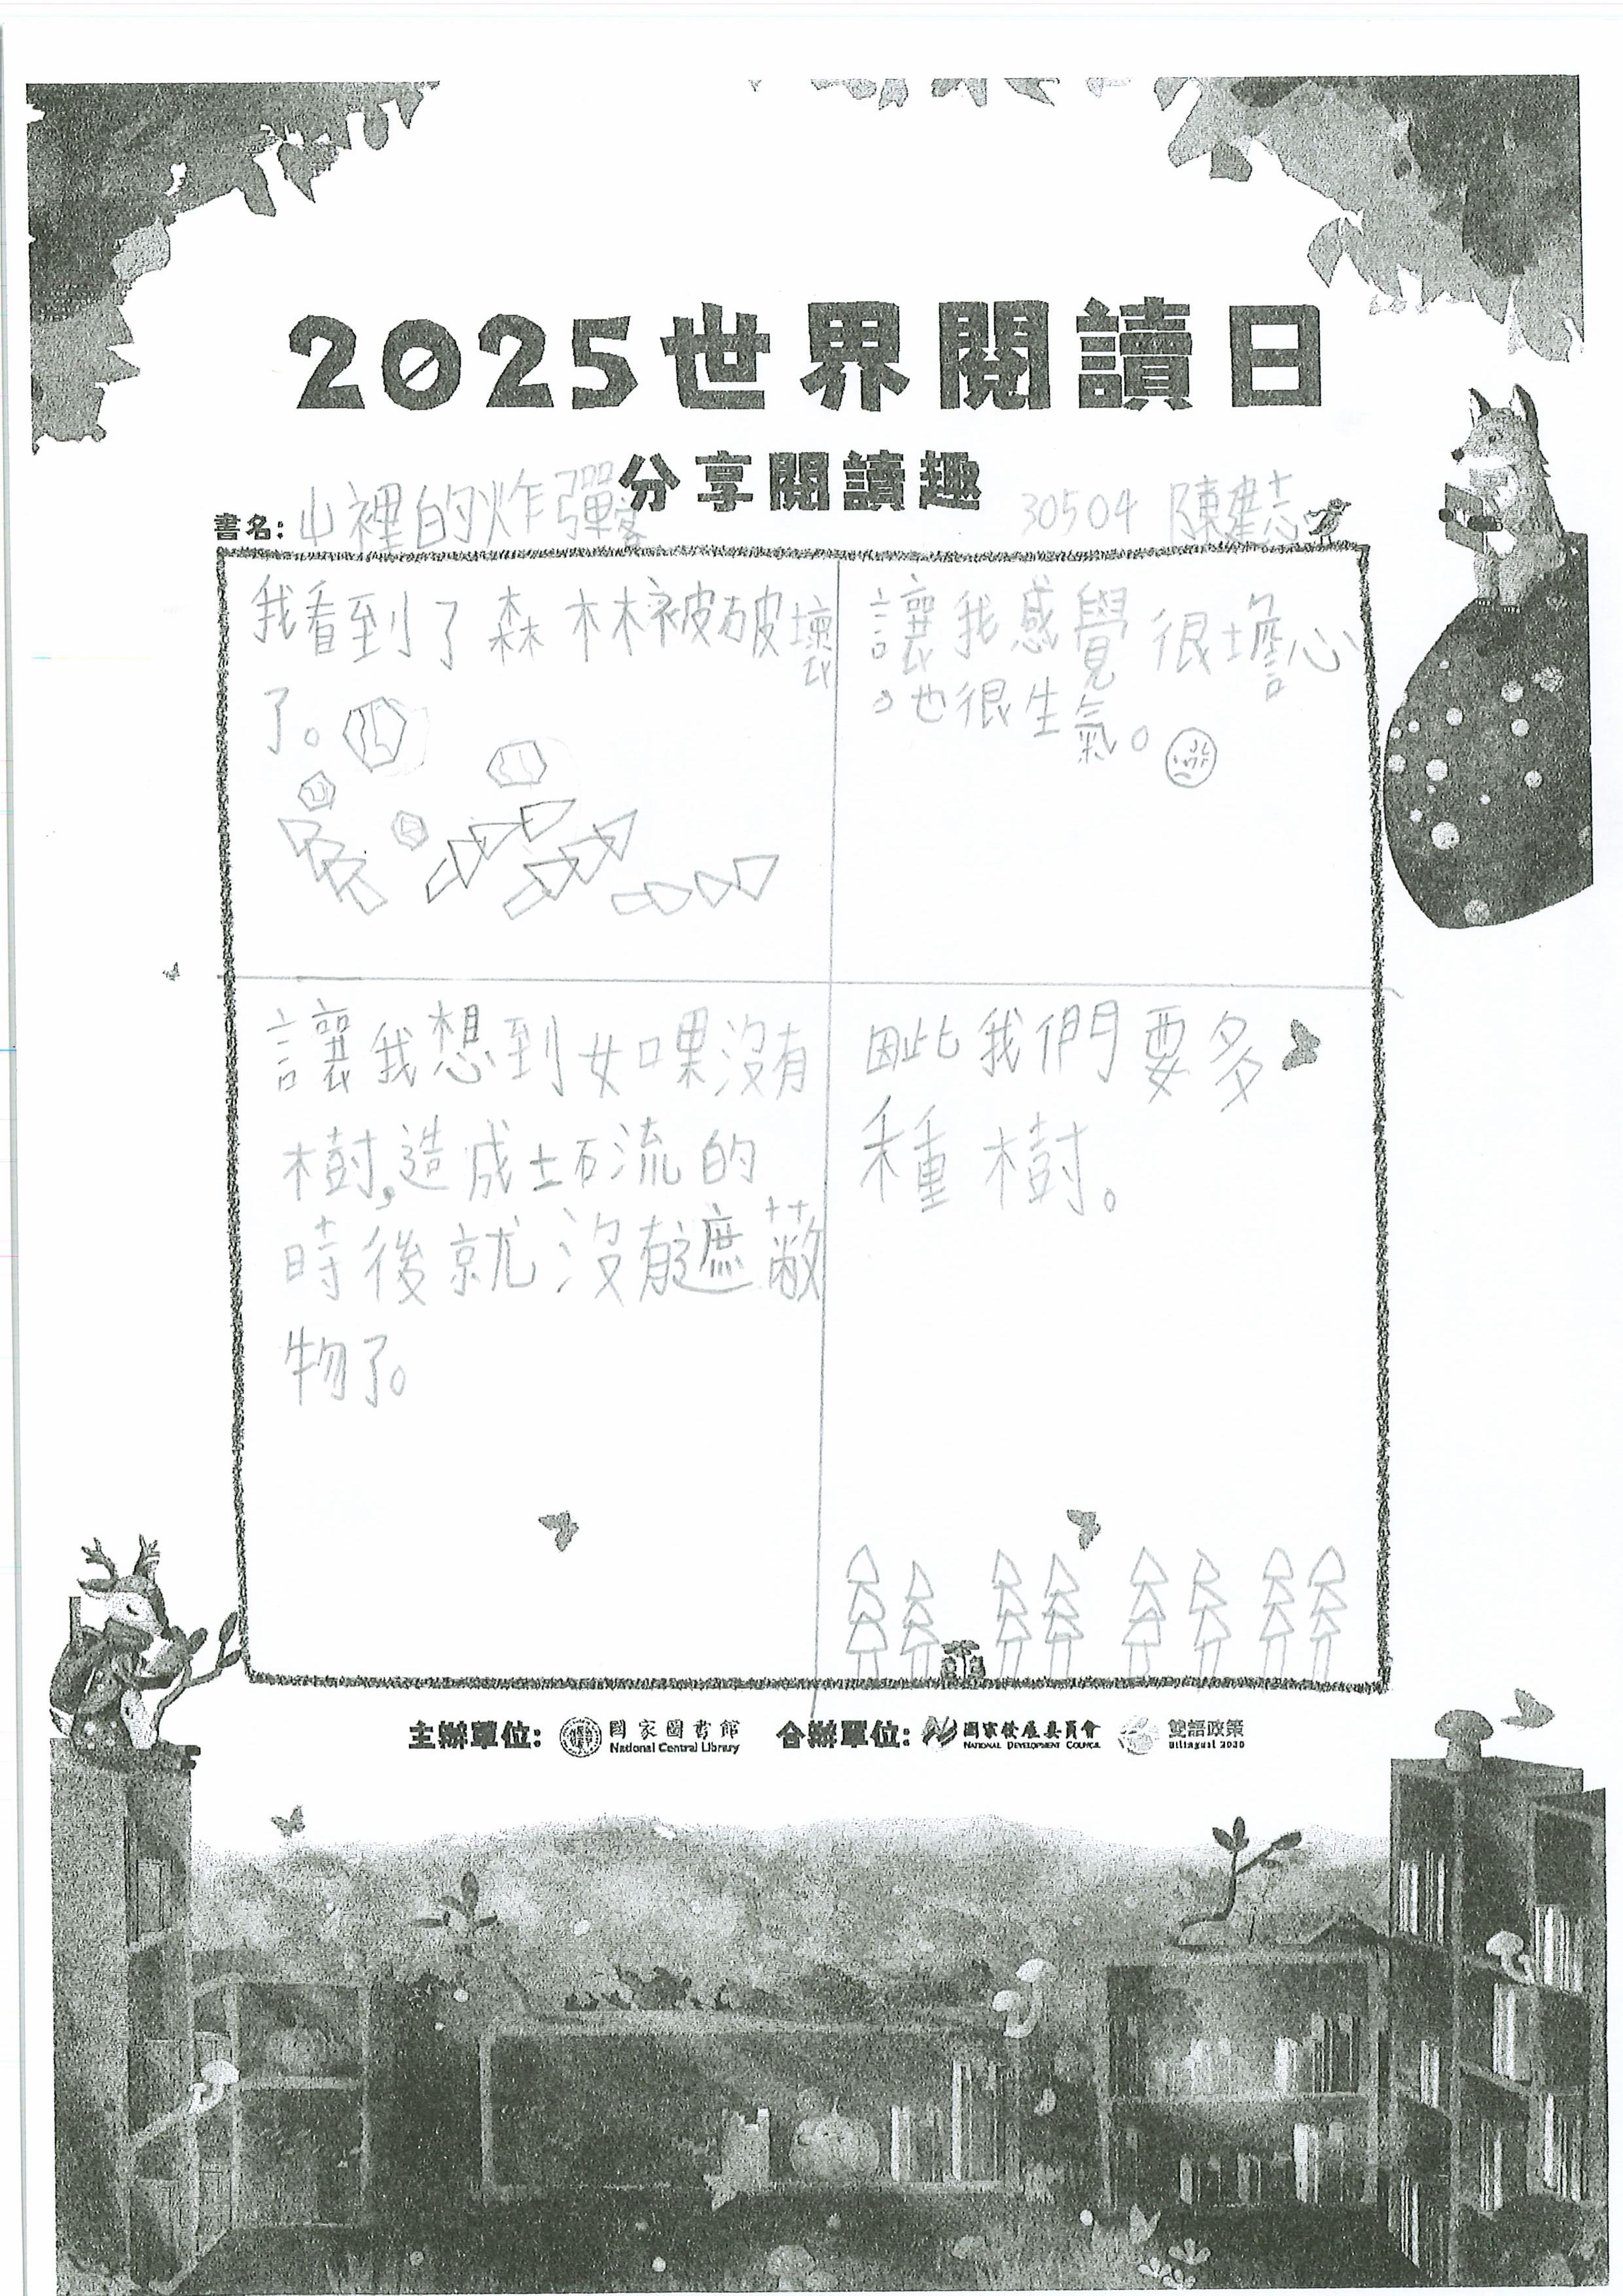 2025世界閱讀日
分享閱讀趣
書名: 山裡的炸彈客
30504 陳建志
我看到了森林被破壞
了。
讓我感覺很擔心
,也很生氣。
讓我想到如果沒有
樹,造成土石流的
時後就沒有遮蔽
物了。
因此我們要多
種樹。
主辦單位: 國家圖書館 National Central Library 合辦單位: 國家發展委員會 NATIONAL DEVELOPMENT COUNCIL 雙語政策 Bilingual 2030